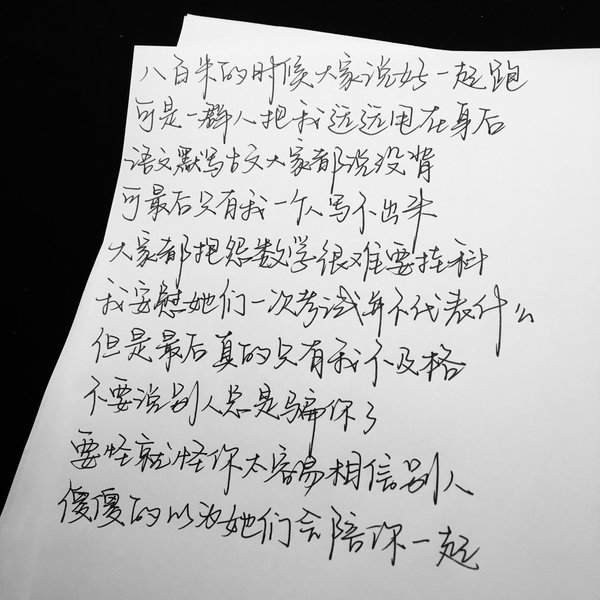 八百米的时候大家说好一起跑
可是一群人把我远远甩在身后
语文默写古文大家都说没背
可最后只有我一个人写不出来
大家都抱怨数学很难要挂科
我安慰她们一次考试并不代表什么
但是最后真的只有我不及格
不要说别人总是骗你了
要怪就怪你太容易相信别人
傻傻的以为她们会陪你一起